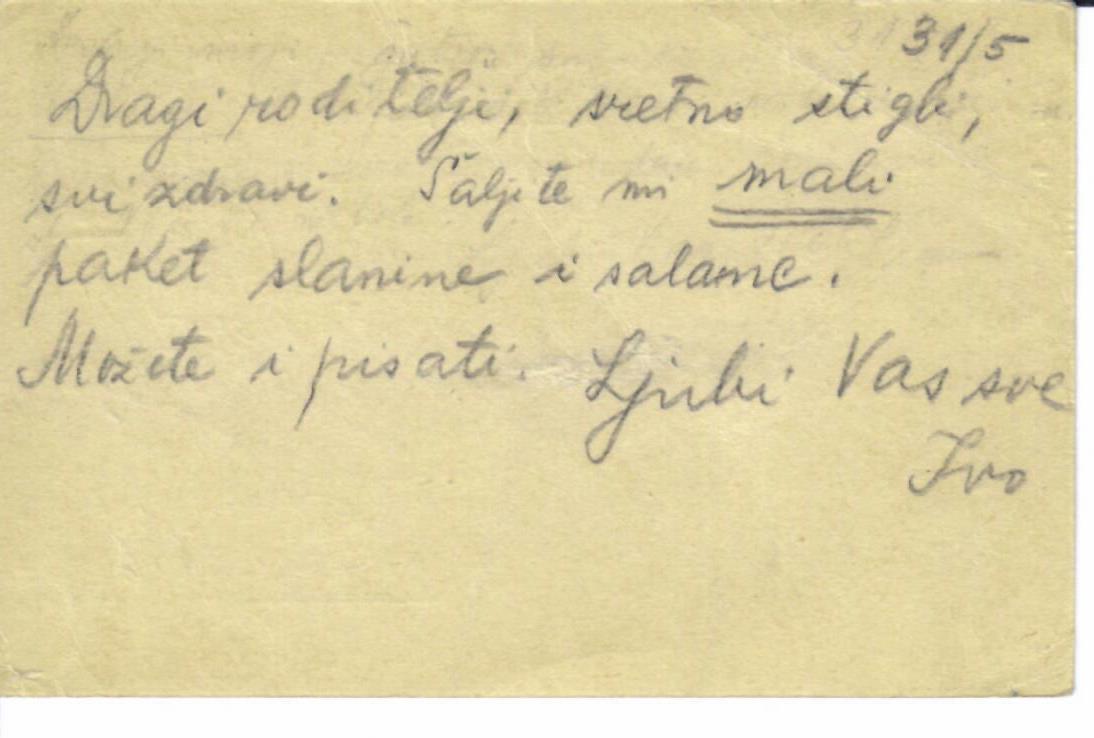 31/5
Dragi roditelji, sretno stigli,
svi zdravi. Šaljite mi mali
paket slanine i salame.
Možete i pisati. Ljubi Vas sve
Ivo